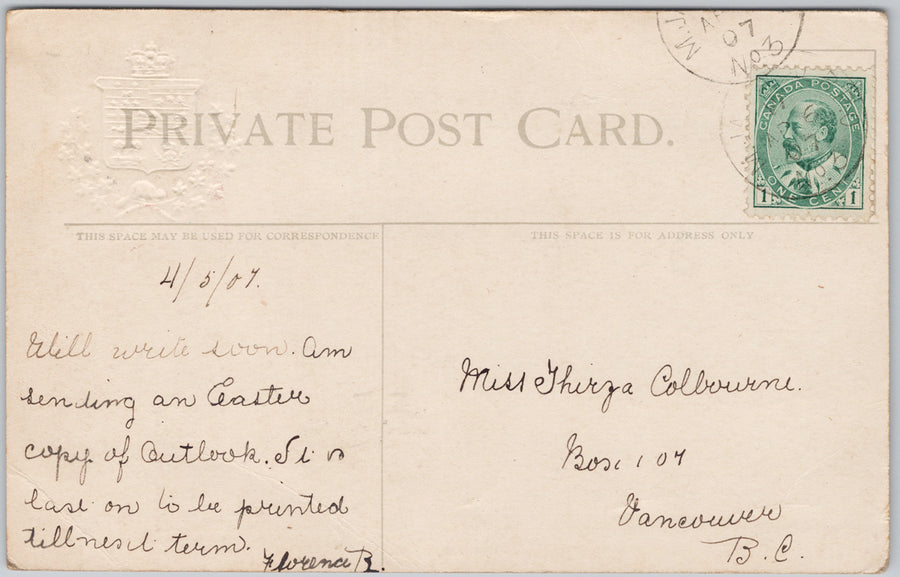 PRIVATE POST CARD.
M.J.
AP
07
No 3
CANADA POSTAGE
1 ONE CENT 1
THIS SPACE MAY BE USED FOR CORRESPONDENCE
THIS SPACE IS FOR ADDRESS ONLY
4/5/07.
Will write soon. Am
sending an Easter
copy of Outlook. It is
last on to be printed
till next term.
Florena B.
Miss Thirza Colbourne.
Box 107
Vancouver
B.C.